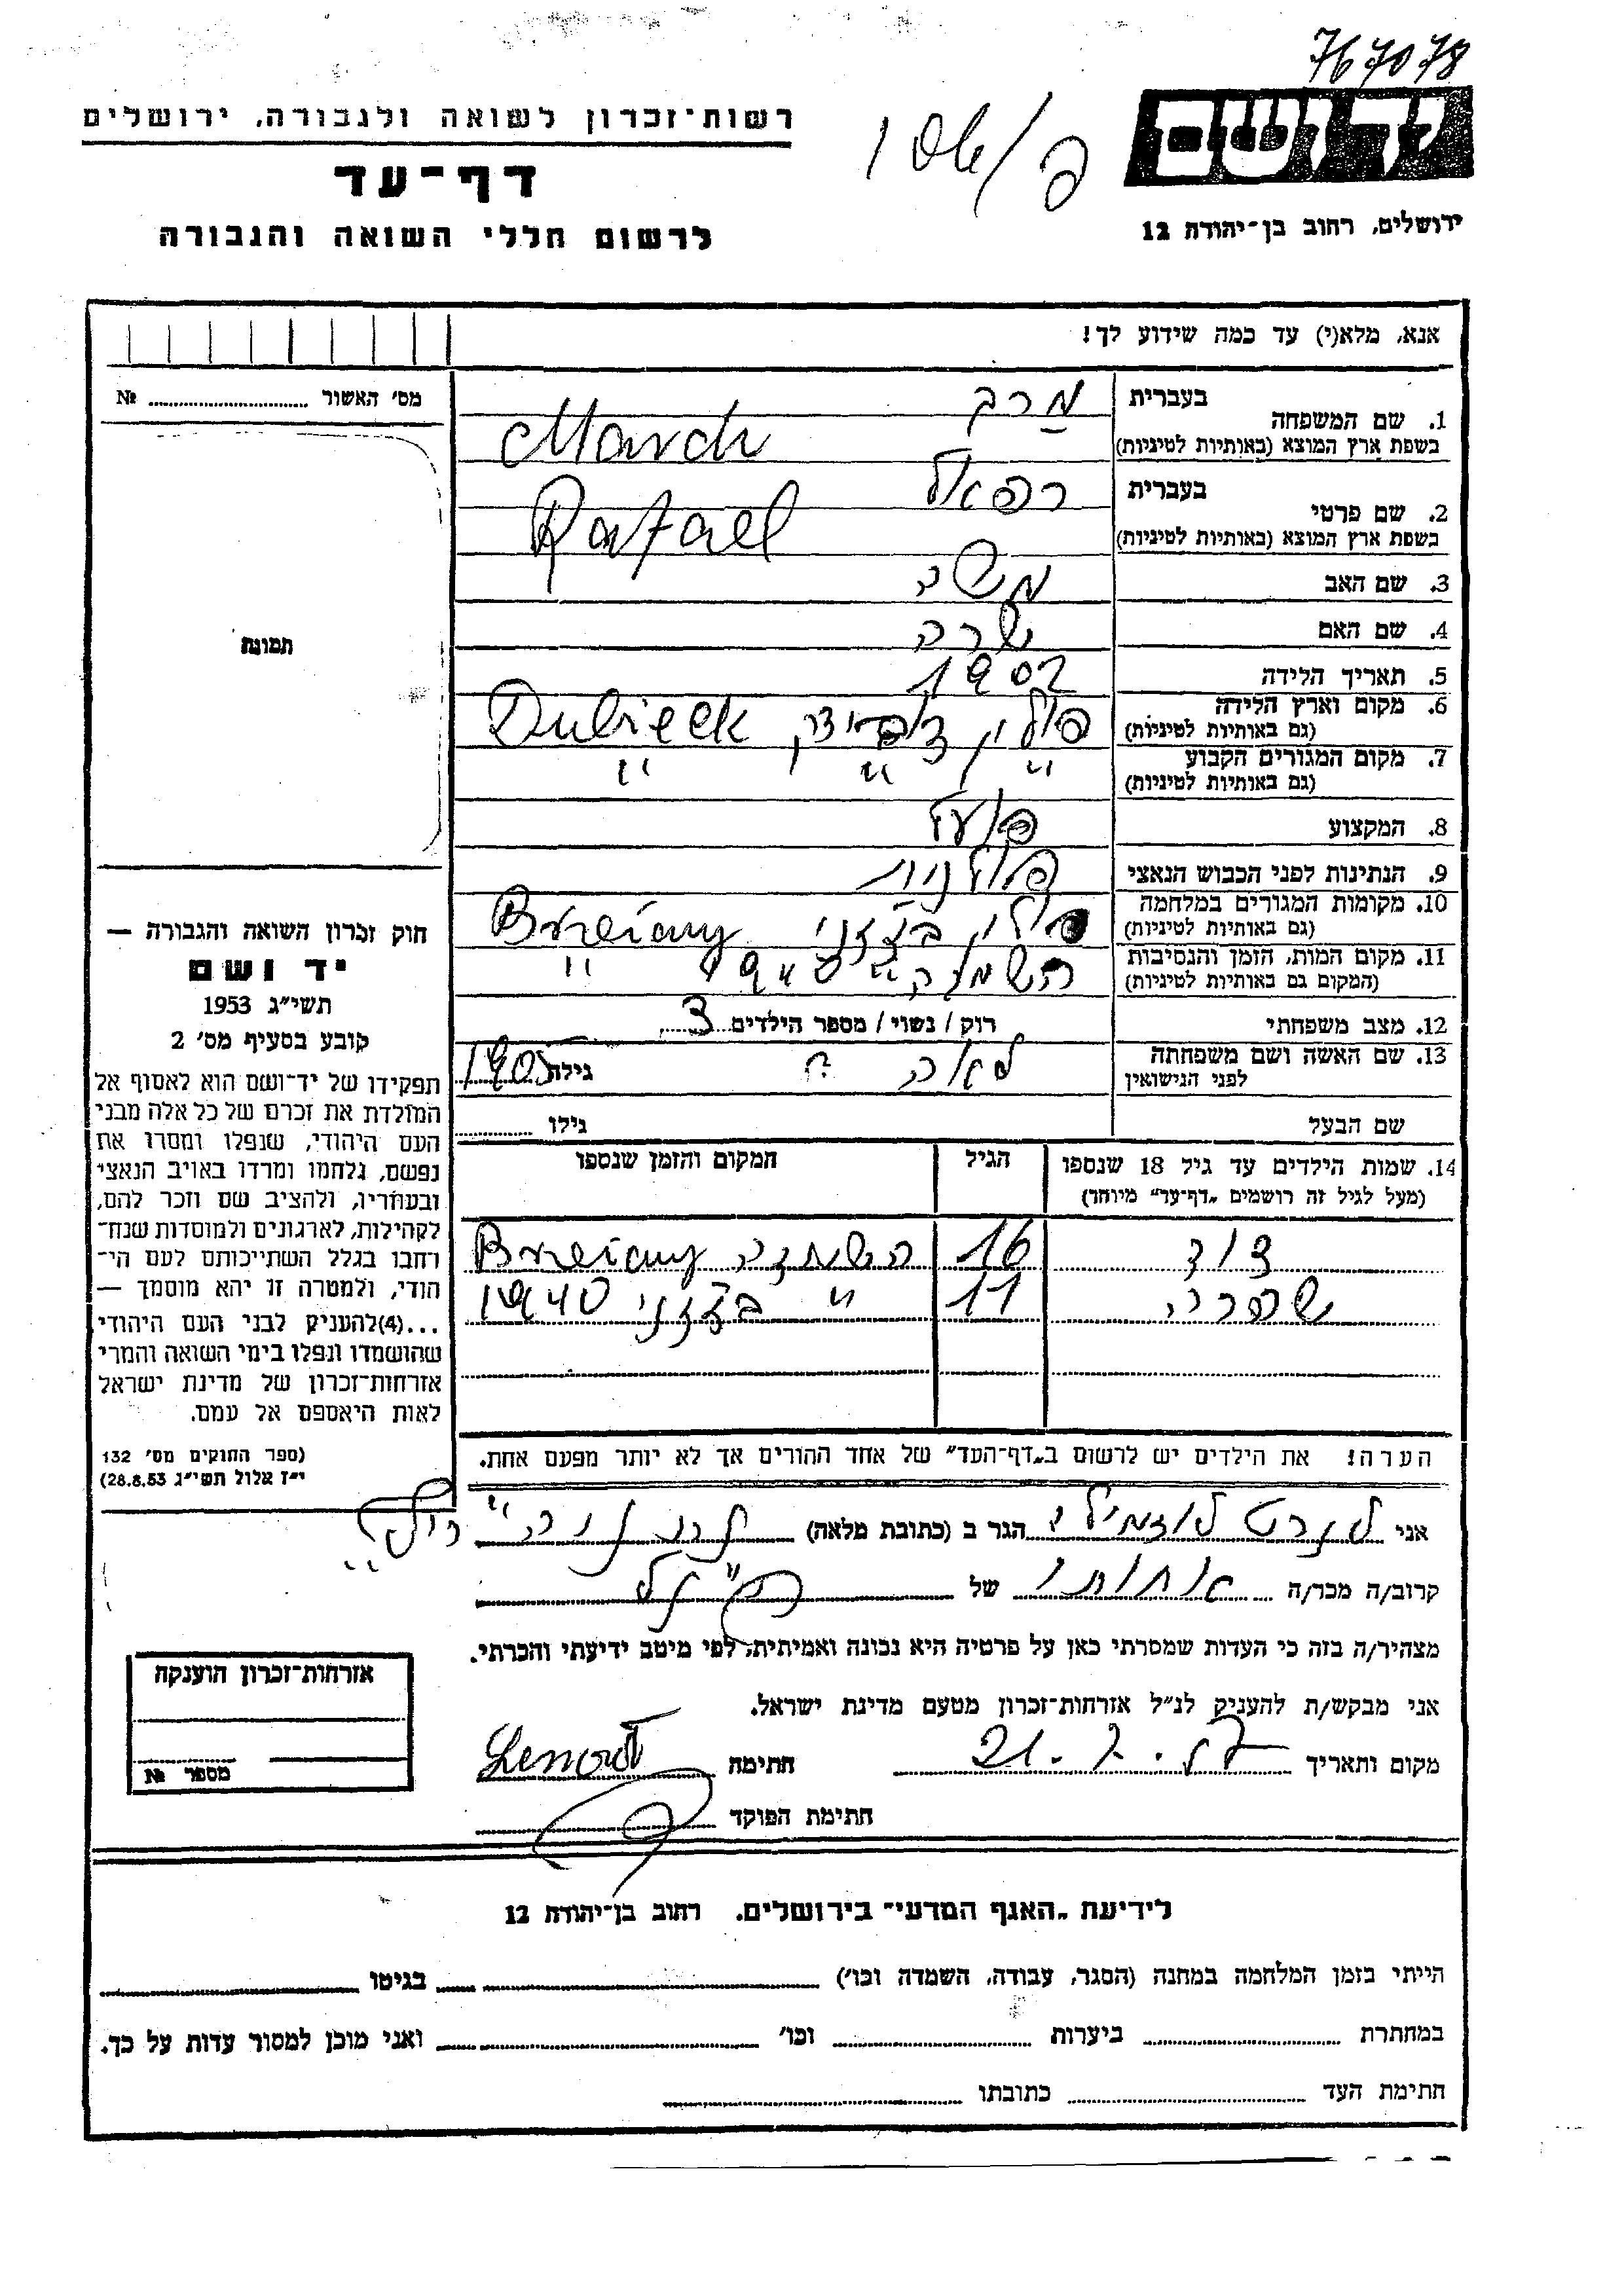 767078
יד ושם
רשות־זכרון לשואה ולגבורה, ירושלים
דף־עד
לרשום חללי השואה והגבורה
ירושלים, רחוב בן־יהודה 12
אנא, מלא(י) עד כמה שידוע לך!
מס׳ האשור ............ №
תמונה
1. שם המשפחה
בעברית
מרב
בשפת ארץ המוצא (באותיות לטיניות)
2. שם פרטי
בעברית
רפאל
בשפת ארץ המוצא (באותיות לטיניות)
Rafael
3. שם האב
משה
4. שם האם
שרה
5. תאריך הלידה
1902
6. מקום וארץ הלידה
(גם באותיות לטיניות)
פולין Dubieck
7. מקום המגורים הקבוע
(גם באותיות לטיניות)
" " "
8. המקצוע
פועל
9. הנתינות לפני הכבוש הנאצי
פולנית
10. מקומות המגורים במלחמה
(גם באותיות לטיניות)
פולין
11. מקום המות, הזמן והנסיבות
(המקום גם באותיות לטיניות)
12. מצב משפחתי
רוק / נשוי / מספר הילדים 3
13. שם האשה ושם משפחתה
לפני הנישואין
לאה ? גילה 1905
שם הבעל
גילו ............
14. שמות הילדים עד גיל 18 שנספו
(מעל לגיל זה רושמים „דף־עד״ מיוחד)
הגיל
המקום והזמן שנספו
דוד 16 השמדה
שפרה 11 " 1940
הערה! את הילדים יש לרשום ב„דף־העד״ של אחד ההורים אך לא יותר מפעם אחת.
חוק זכרון השואה והגבורה —
יד ושם
תשי״ג 1953
קובע בסעיף מס׳ 2
תפקידו של יד־ושם הוא לאסוף אל
המולדת את זכרם של כל אלה מבני
העם היהודי, שנפלו ומסרו את
נפשם, נלחמו ומרדו באויב הנאצי
ובעוזריו, ולהציב שם וזכר להם,
לקהילות, לארגונים ולמוסדות שנח־
רחבו בגלל השתייכותם לעם הי־
הודי, ולמטרה זו יהא מוסמך —
...(4)להעניק לבני העם היהודי
שהושמדו ונפלו בימי השואה והמרי
אזרחות־זכרון של מדינת ישראל
לאות היאספם אל עמם.
(ספר החוקים מס׳ 132
י״ז אלול תשי״ג 28.8.53)
אני לנרט הגר ב (כתובת מלאה)
קרוב/ה מכר/ה אחותו של הנ״ל
מצהיר/ה בזה כי העדות שמסרתי כאן על פרטיה היא נכונה ואמיתית, לפי מיטב ידיעתי והכרתי.
אני מבקש/ת להעניק לנ״ל אזרחות־זכרון מטעם מדינת ישראל.
מקום ותאריך 21.7.57 חתימה
חתימת הפוקד
אזרחות־זכרון הוענקה
מספר №
לידיעת „האגף המדעי״ בירושלים. רחוב בן־יהודה 12
הייתי בזמן המלחמה במחנה (הסגר, עבודה, השמדה וכו׳) ............ בגיטו ............
במחתרת ............ ביערות ............ וכו׳ ............ ואני מוכן למסור עדות על כך.
חתימת העד ............ כתובתו ............